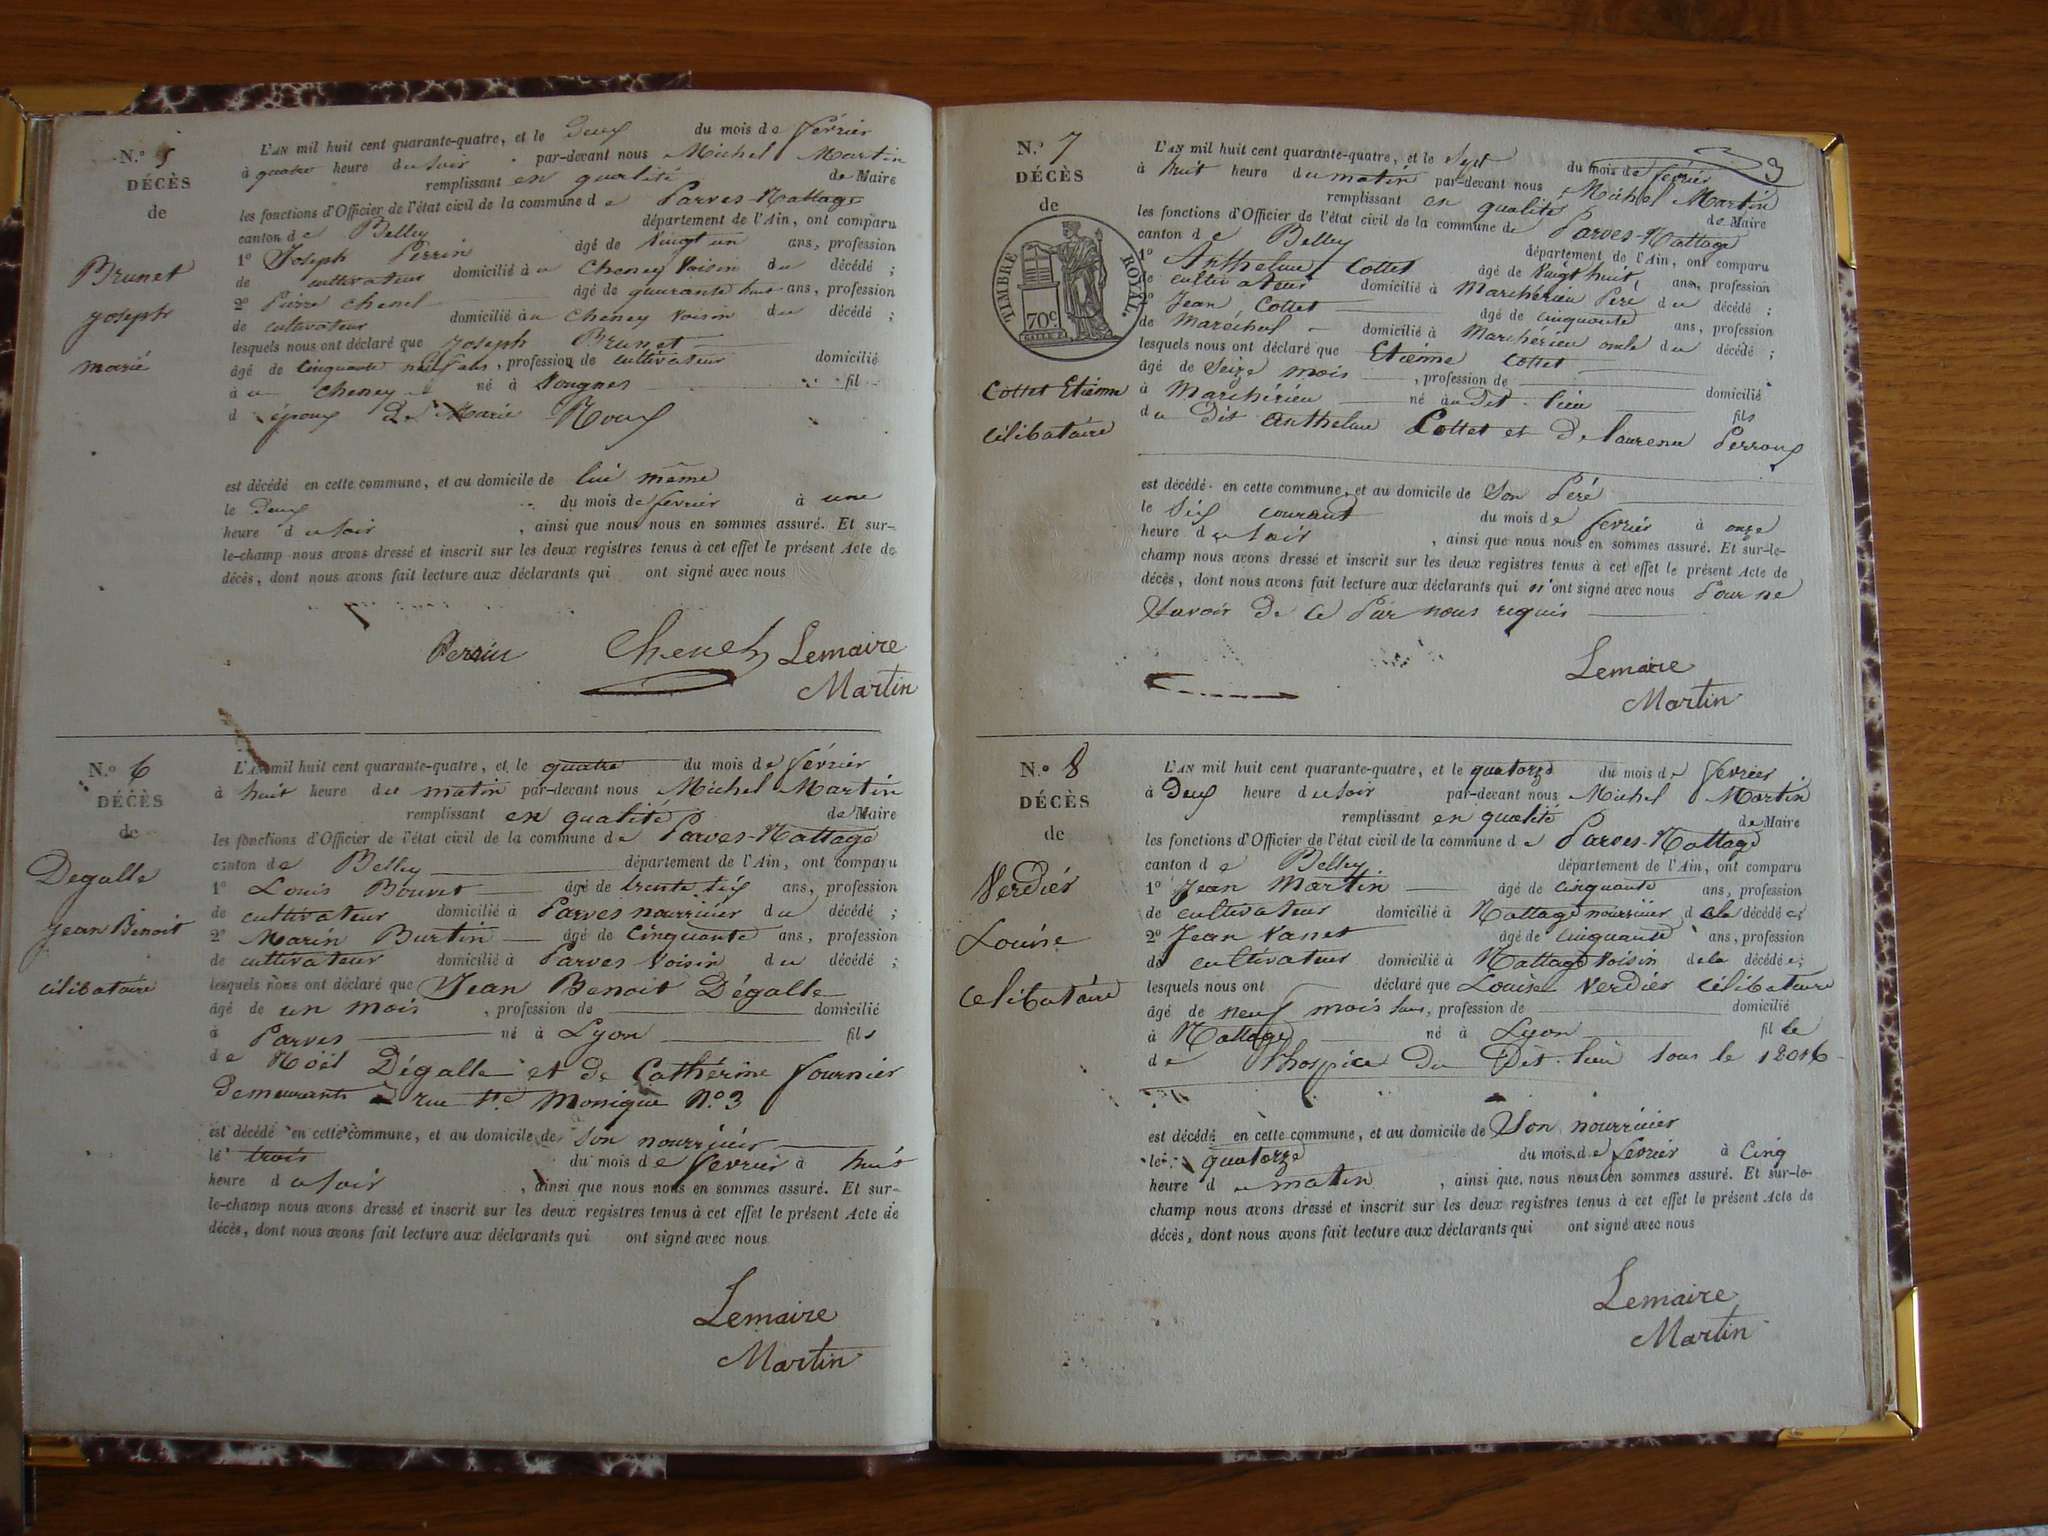 N.º 5
DÉCÈS
de
Brunet
Joseph
marié
L'AN mil huit cent quarante-quatre, et le deux du mois de février
à quatre heure du soir par-devant nous Michel Martin
remplissant en qualité de Maire
les fonctions d'Officier de l'état civil de la commune de Parves-Nattage
canton de Belley département de l'Ain, ont comparu
1º Joseph Perrin âgé de vingt un ans, profession
de cultivateur domicilié à u Cheney Voisin du décédé ;
2º Pierre Chenel âgé de quarante huit ans, profession
de cultivateur domicilié à u Cheney voisin du décédé ;
lesquels nous ont déclaré que Joseph Brunet
âgé de cinquante neuf ans, profession de cultivateur domicilié
à u Cheney né à Vougnes fil
d époux de Marie Roux
est décédé en cette commune, et au domicile de lui même
le deux du mois de fevrier à une
heure du soir , ainsi que nous nous en sommes assuré. Et sur-
le-champ nous avons dressé et inscrit sur les deux registres tenus à cet effet le présent Acte de
décès, dont nous avons fait lecture aux déclarants qui ont signé avec nous
Perrin Chenel Lemaire
Martin
N.º 6
DÉCÈS
de
Degalle
Jean Benoit
célibataire
L'AN mil huit cent quarante-quatre, et le quatre du mois de février
à huit heure du matin par-devant nous Michel Martin
remplissant en qualité de Maire
les fonctions d'Officier de l'état civil de la commune de Parves-Nattage
canton de Belley département de l'Ain, ont comparu
1º Louis Bouvet âgé de trente six ans, profession
de cultivateur domicilié à Parves nourricier du décédé ;
2º Marin Burtin âgé de cinquante ans, profession
de cultivateur domicilié à Parves Voisin du décédé ;
lesquels nous ont déclaré que Jean Benoit Dégalle
âgé de un mois , profession de domicilié
à Parves né à Lyon fils
de Noël Dégalle et de Cathérine fournier
demeurants à rue Ste Monique N.º 3
est décédé en cette commune, et au domicile de son nourricier
le trois du mois de fevrier à huit
heure du soir , ainsi que nous nous en sommes assuré. Et sur-
le-champ nous avons dressé et inscrit sur les deux registres tenus à cet effet le présent Acte de
décès, dont nous avons fait lecture aux déclarants qui ont signé avec nous
Lemaire
Martin
3
N.º 7
DÉCÈS
de
TIMBRE ROYAL.
70c
Cottet Etiénne
célibataire
L'AN mil huit cent quarante-quatre, et le sept du mois de février
à huit heure du matin par-devant nous Michel Martin
remplissant en qualité de Maire
les fonctions d'Officier de l'état civil de la commune de Parves-Nattage
canton de Belley département de l'Ain, ont comparu
1º Anthelme Cottet âgé de vingt huit ans, profession
de cultivateur domicilié à Marchérieu Père du décédé ;
2º Jean Cottet âgé de cinquante ans, profession
de Maréchal domicilié à Marchérieu oncle du décédé ;
lesquels nous ont déclaré que Etiénne Cottet
âgé de seize mois , profession de domicilié
à Marchérieu né audit lieu fils
du dit Anthelme Cottet et de Perroux
est décédé en cette commune, et au domicile de Son Péré
le six courant du mois de fevriér à onze
heure du soir , ainsi que nous nous en sommes assuré. Et sur-le-
champ nous avons dressé et inscrit sur les deux registres tenus à cet effet le présent Acte de
décès, dont nous avons fait lecture aux déclarants qui n'ont signé avec nous Pour ne
Savoir de ce Par nous requis
Lemaire
Martin
N.º 8
DÉCÈS
de
Verdiér
Louise
célibatáire
L'AN mil huit cent quarante-quatre, et le quatorze du mois de fevrier
à Deux heure du soir par-devant nous Michel Martin
remplissant en qualité de Maire
les fonctions d'Officier de l'état civil de la commune de Parves-Nattage
canton de Belley département de l'Ain, ont comparu
1º Jean Martin âgé de cinquante ans, profession
de cultivateur domicilié à Nattage nourricier de la décédée;
2º Jean Vanet âgé de cinquante ans, profession
de cultivateur domicilié à Nattage Voisin de la décédée;
lesquels nous ont déclaré que Louise Verdiér célibataire
âgé de neuf mois , profession de domicilié
à Nattage né à Lyon fil le
de l'hospice Du Dit lieu sous le 12016
est décédé en cette commune, et au domicile de Son nourricier
le quatorze du mois de février à Cinq
heure d u matin , ainsi que nous nous en sommes assuré. Et sur-le-
champ nous avons dressé et inscrit sur les deux registres tenus à cet effet le présent Acte de
décès, dont nous avons fait lecture aux déclarants qui ont signé avec nous
Lemaire
Martin